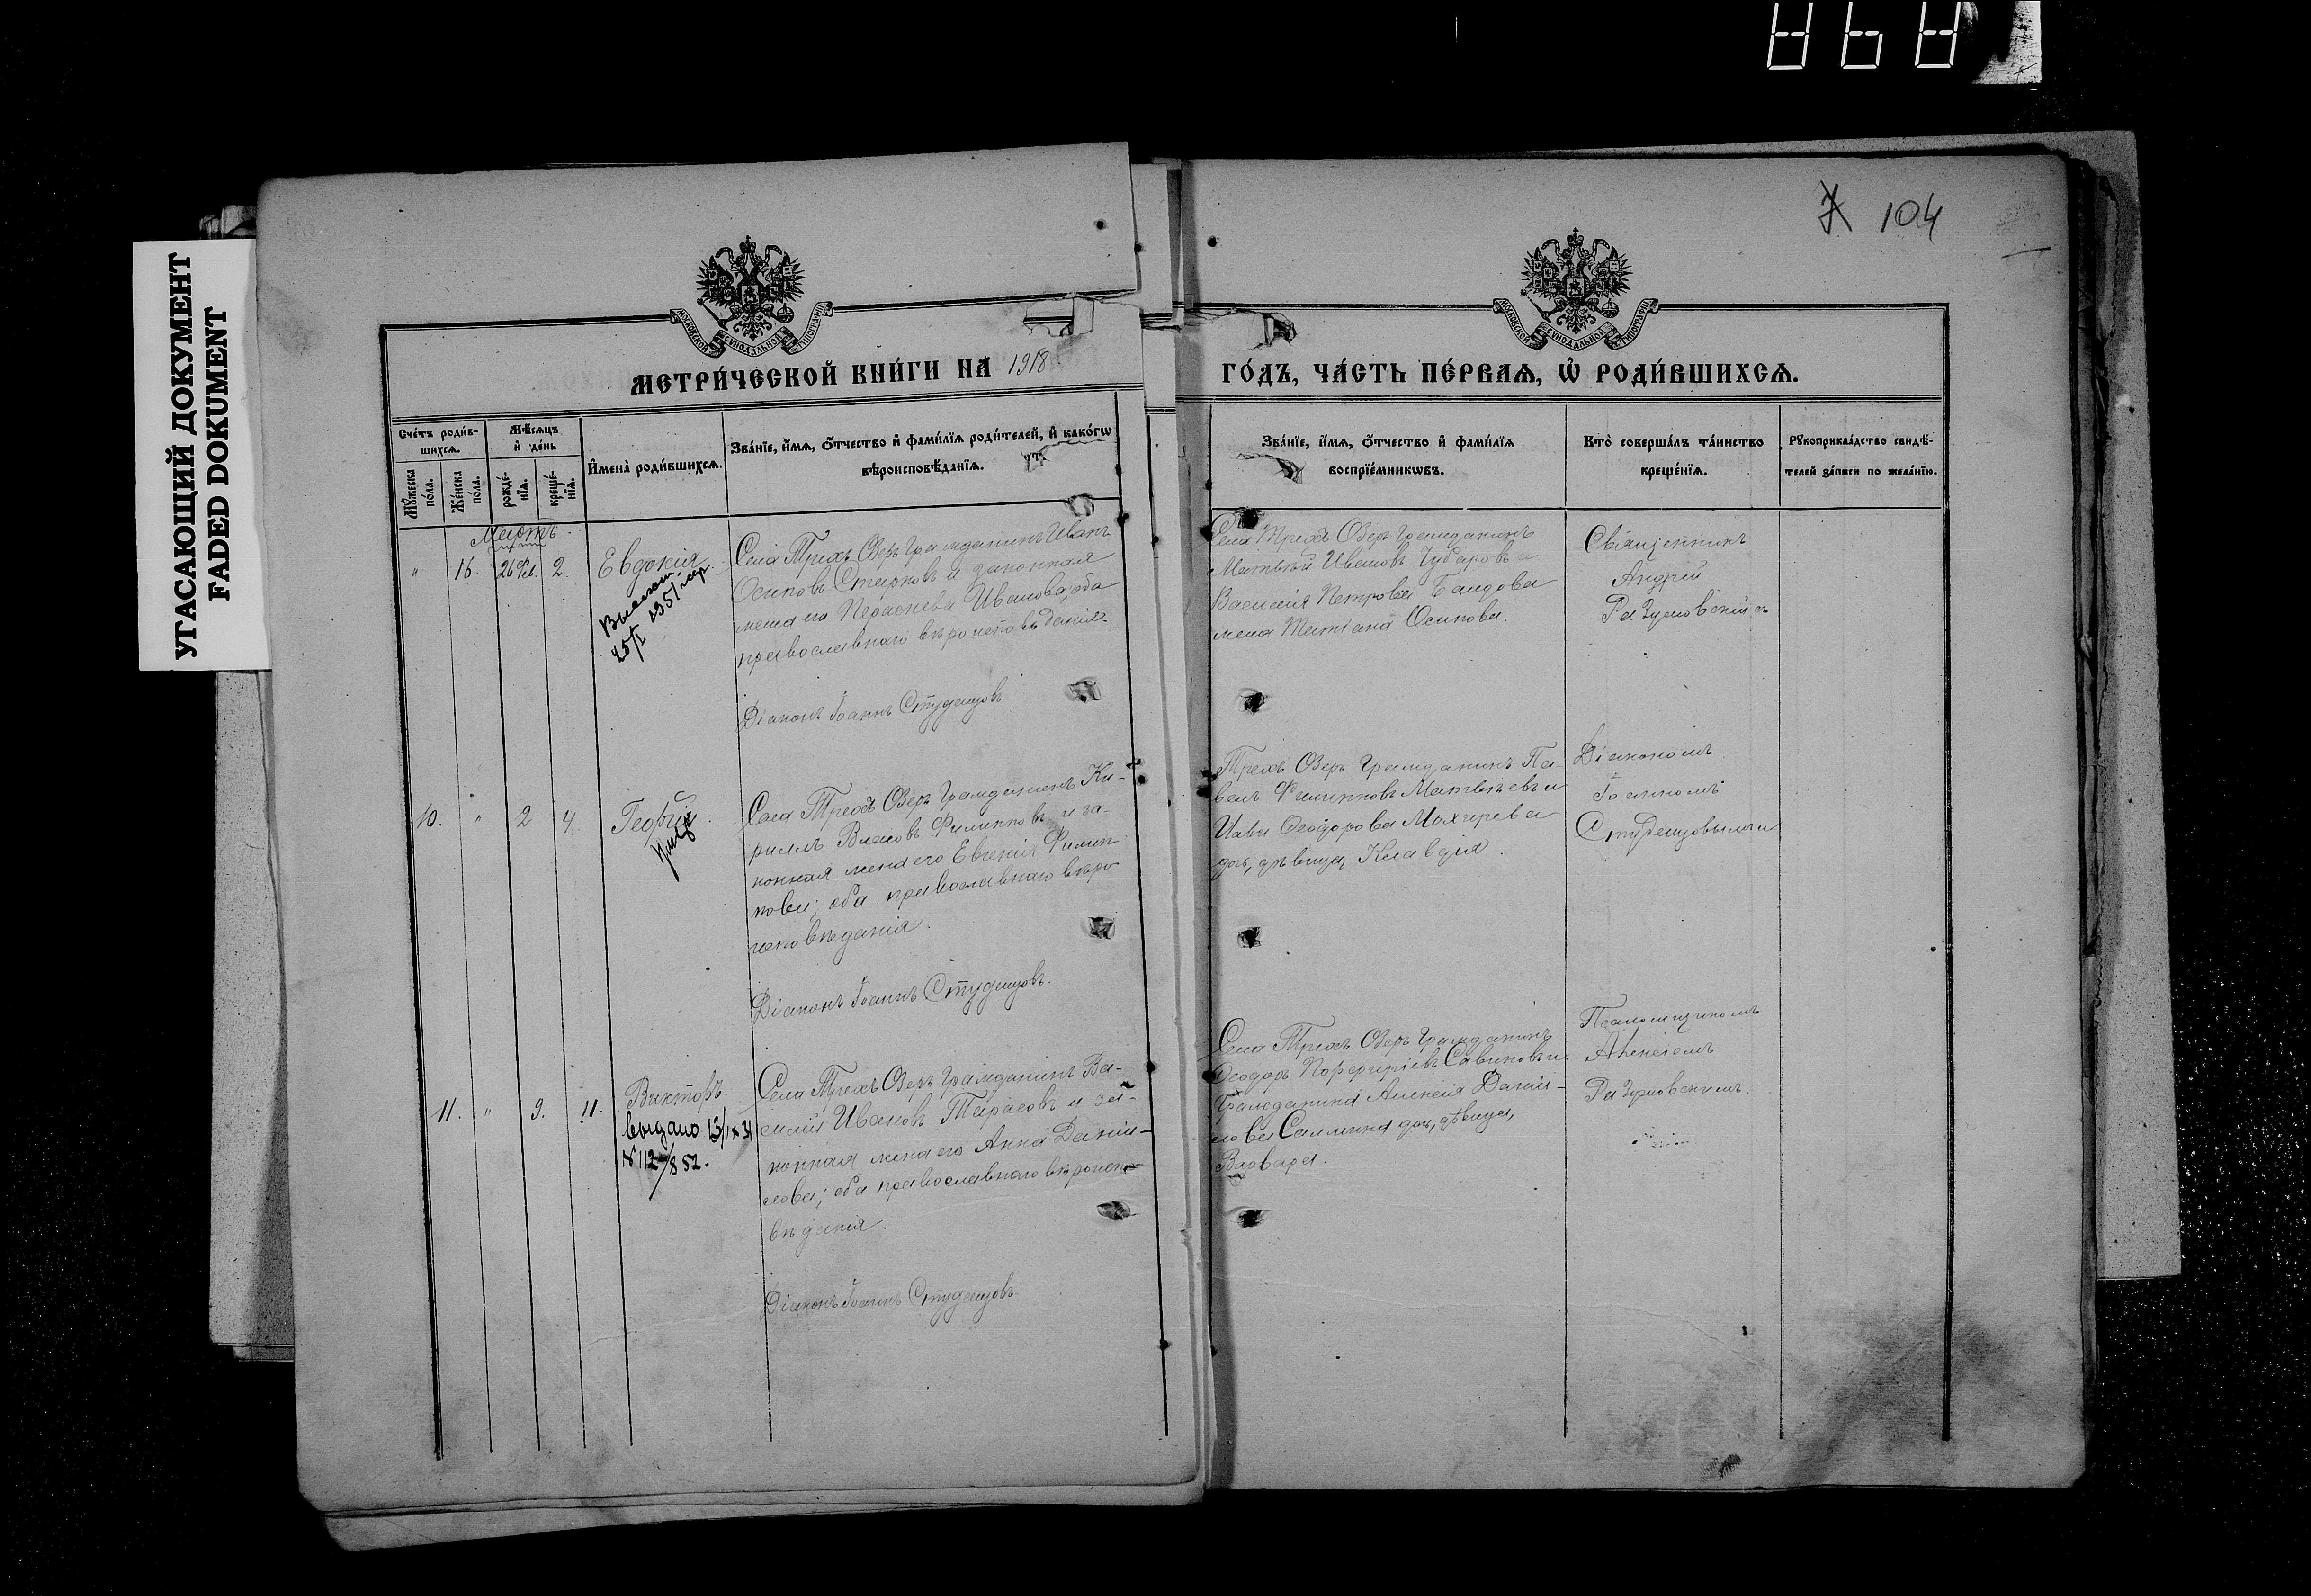 УТАСАЮЩИЙ ДОКУМЕНТ
FADED DOKUMENT
104
МОСКОВСКОЙ СѴНОДАЛЬНОЙ ТИПОГРАФІИ
МОСКОВСКОЙ СѴНОДАЛЬНОЙ ТИПОГРАФІИ
МЕТРИ́ЧЕСКОЙ КНИ́ГИ НА 1918
ГО́ДЪ, ЧА́СТЬ ПЕ́РВАѦ, Ѡ҆ РОДИ́ВШИХСѦ.
Сче́тъ роди́в-
шихсѧ.
Мꙋ́жеска по́ла.
Же́нска по́ла.
Мѣ́сѧцъ
и҆ де́нь
рожде́-
нїѧ.
креще́-
нїѧ.
И҆мена̀ роди́вшихсѧ.
Зва́нїе, и҆́мѧ, ѻ҆́тчество и҆ фами́лїѧ роди́телей, и҆ како́гѡ
вѣроисповѣ́данїѧ.
Зва́нїе, и҆́мѧ, ѻ҆́тчество и҆ фами́лїѧ
воспрїе́мникѡвъ.
Кто̀ соверша́лъ та́инство
креще́нїѧ.
Рꙋкоприкла́дство свидѣ́-
телей за́писи по жела́нїю.
Мартъ
" 16. 26 Фев. 2. Евдокія
25/I 1951
Села Трехъ Озеръ гражданинъ Иванъ
Осиповъ Старковъ и законная
жена его Параскева Иванова, оба
православнаго вѣроисповѣданія.
Діаконъ Іоаннъ Студенцовъ.
Села Трехъ Озеръ гражданинъ
Матвѣй Ивановъ Чубаровъ и
Василія Петрова
жена Татіана Осипова.
Священникъ
Андрей
Разумовскій
10. " 2 4 Георгій
Села Трехъ Озеръ гражданинъ Ки-
риллъ Власовъ Филипповъ и за-
конная жена его Евгенія Филип-
пова; оба православнаго вѣро-
исповѣданія.
Діаконъ Іоаннъ Студенцовъ.
Трехъ Озеръ гражданинъ Па-
велъ Филипповъ Матвѣевъ и
Ѳеодорова Мохирева
дочь, дѣвица, Клавдія.
Діакономъ
Іоанномъ
Студенцовымъ
11. " 9. 11. Викторъ.
выдано 13/IX 31
N 112/852.
Села Трехъ Озеръ гражданинъ Ва-
силій Ивановъ Тарасовъ и за-
конная жена его Анна Дании-
лова; оба православнаго вѣроиспо-
вѣданія.
Діаконъ Іоаннъ Студенцовъ.
Села Трехъ Озеръ гражданинъ
Ѳеодоръ Порфиріевъ Савиновъ и
гражданина Алексія Даніи-
лова Салмина дочь, дѣвица,
Варвара.
Псаломщикомъ
Алексіемъ
Разумовскимъ.